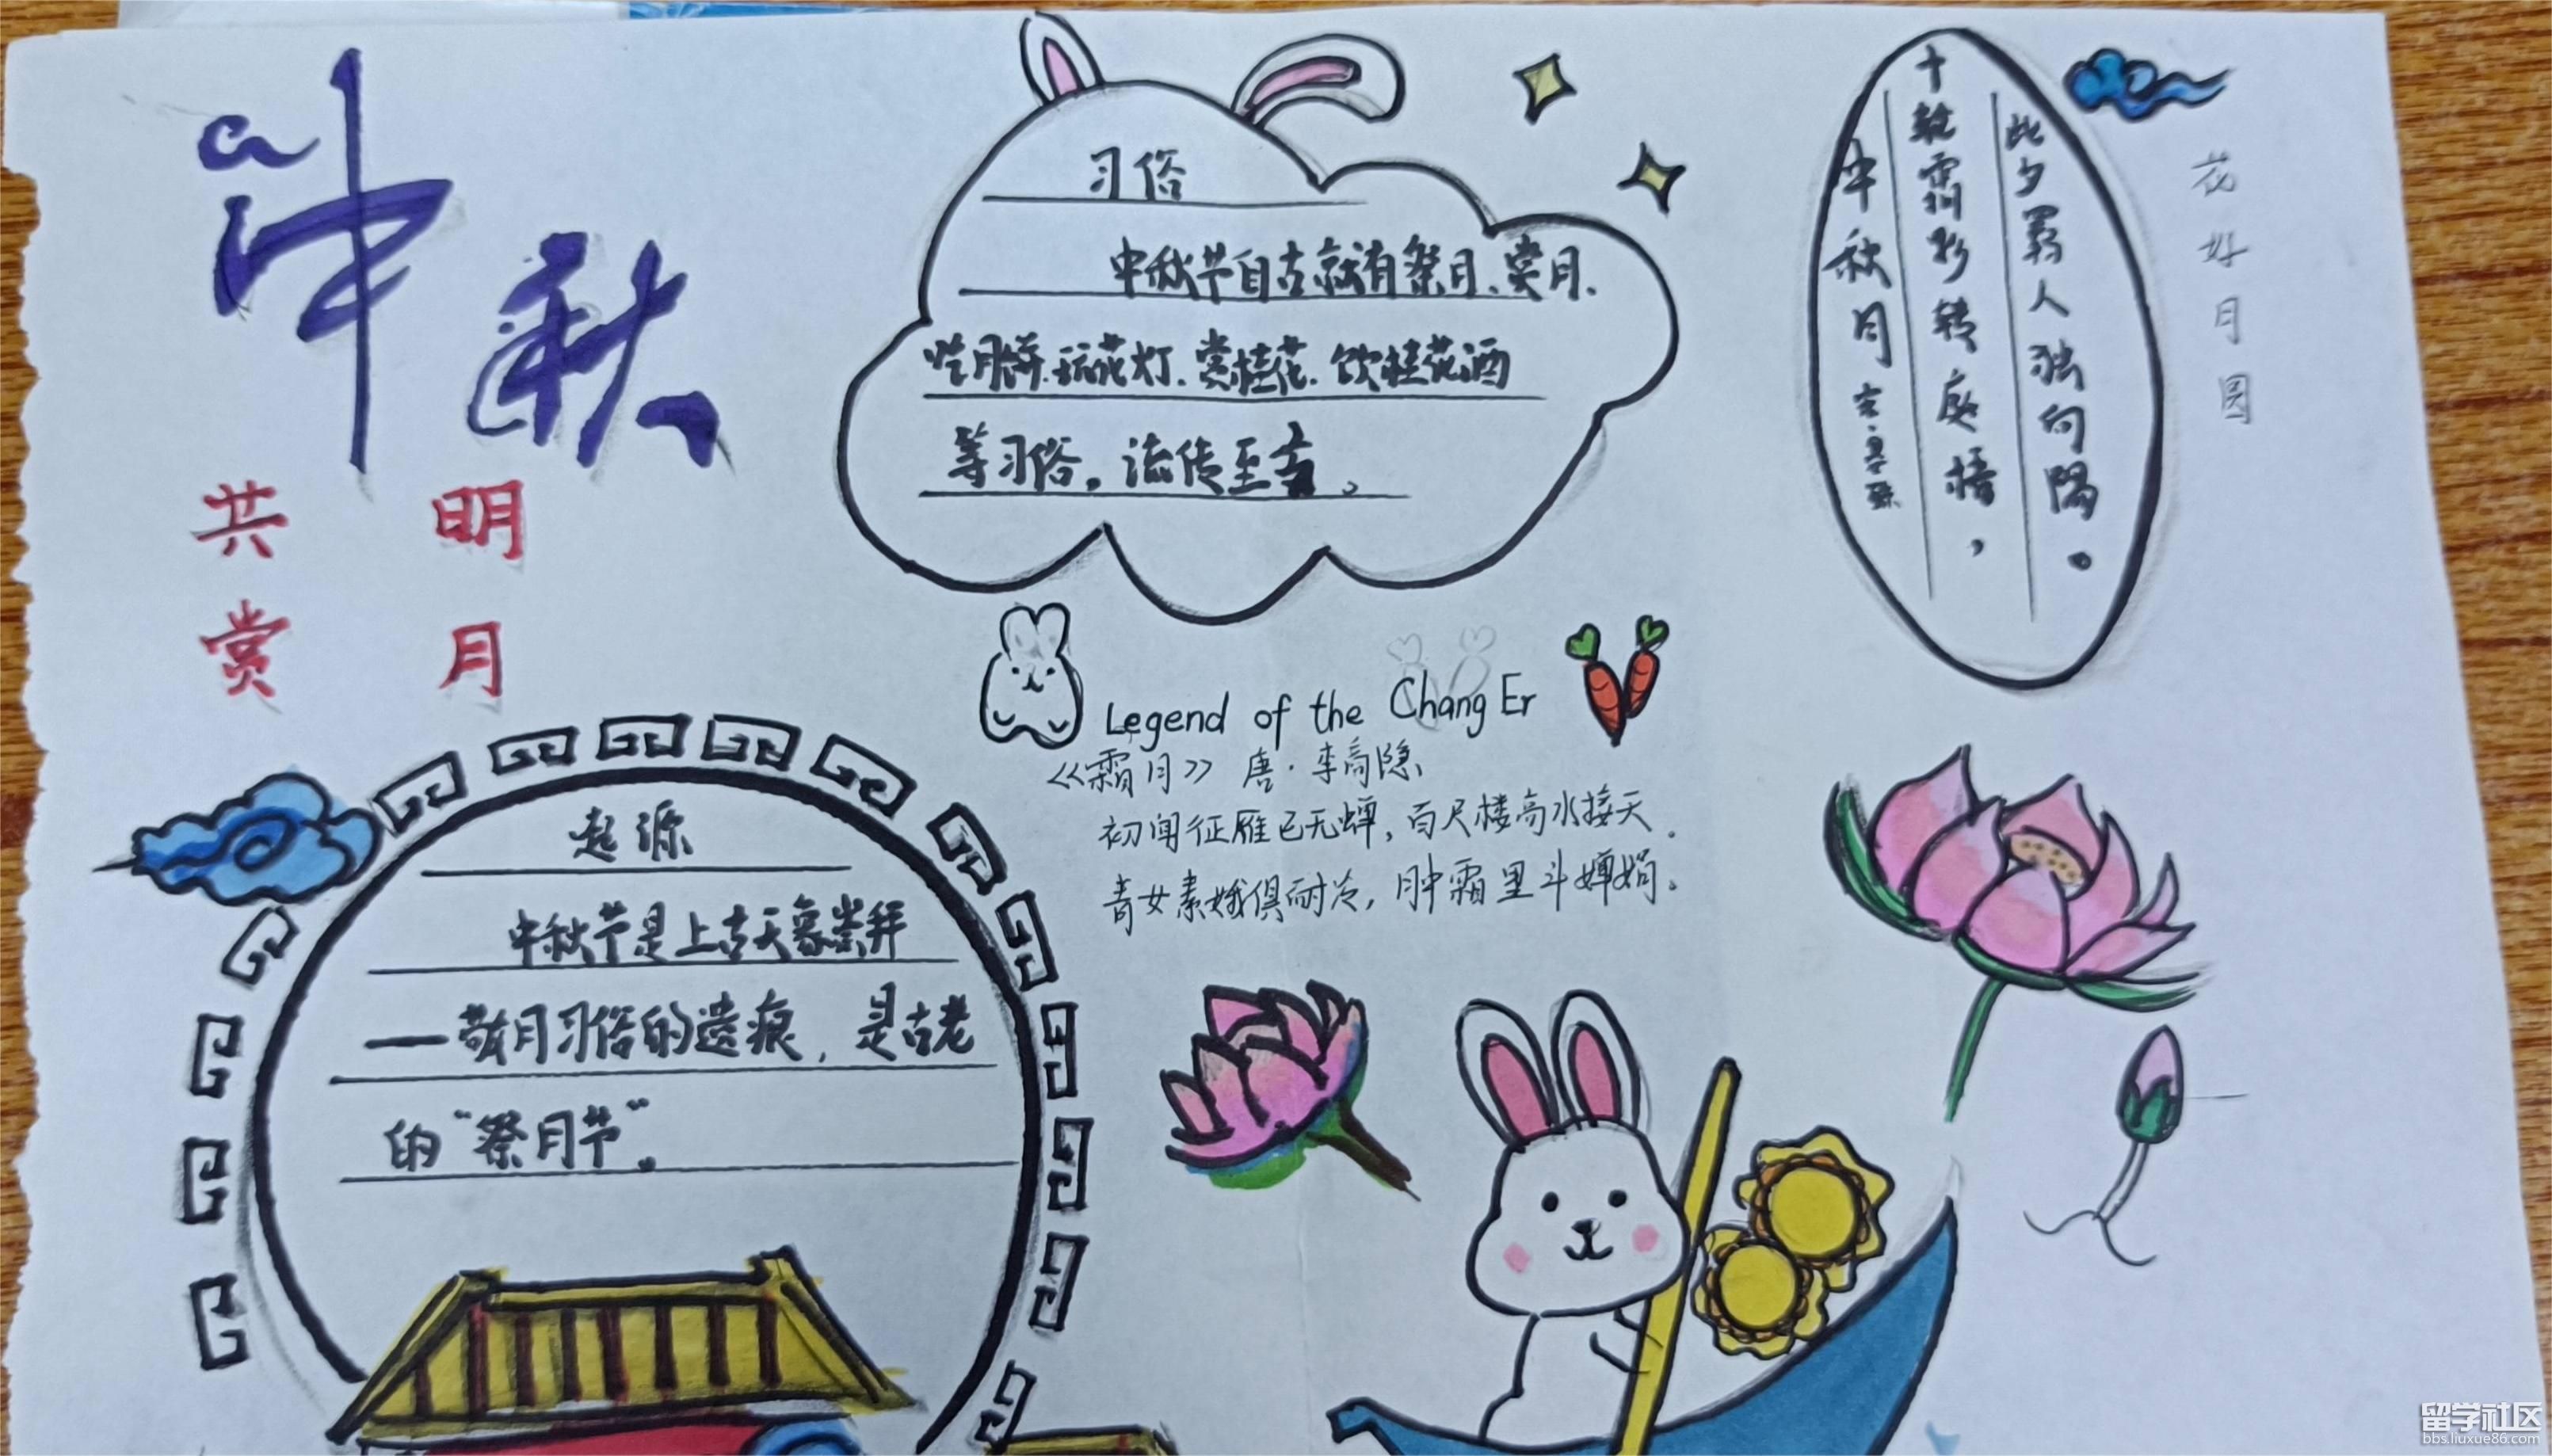 中秋
共赏
明月
习俗
中秋节自古就有祭月、赏月、
吃月饼、玩花灯、赏桂花、饮桂花酒
等习俗。流传至
中秋月 宋·晏殊
十轮霜影转庭梧，
此夕羁人独向隅。
花好月圆
Legend of the Chang Er
《霜月》 唐·李商隐
初闻征雁已无蝉，百尺楼高水接天.
青女素娥俱耐冷，月中霜里斗婵娟。
起源
中秋节是上古天象崇拜
——敬月习俗的遗痕，是古老
的“祭月节”。
留学社区
bbs.liuxue86.com